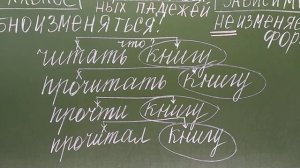 ных падежей
зависим
бно изменяться:
неизменяе
фор
что?
читать книгу
прочитать книгу
прочти книгу
прочитал книгу